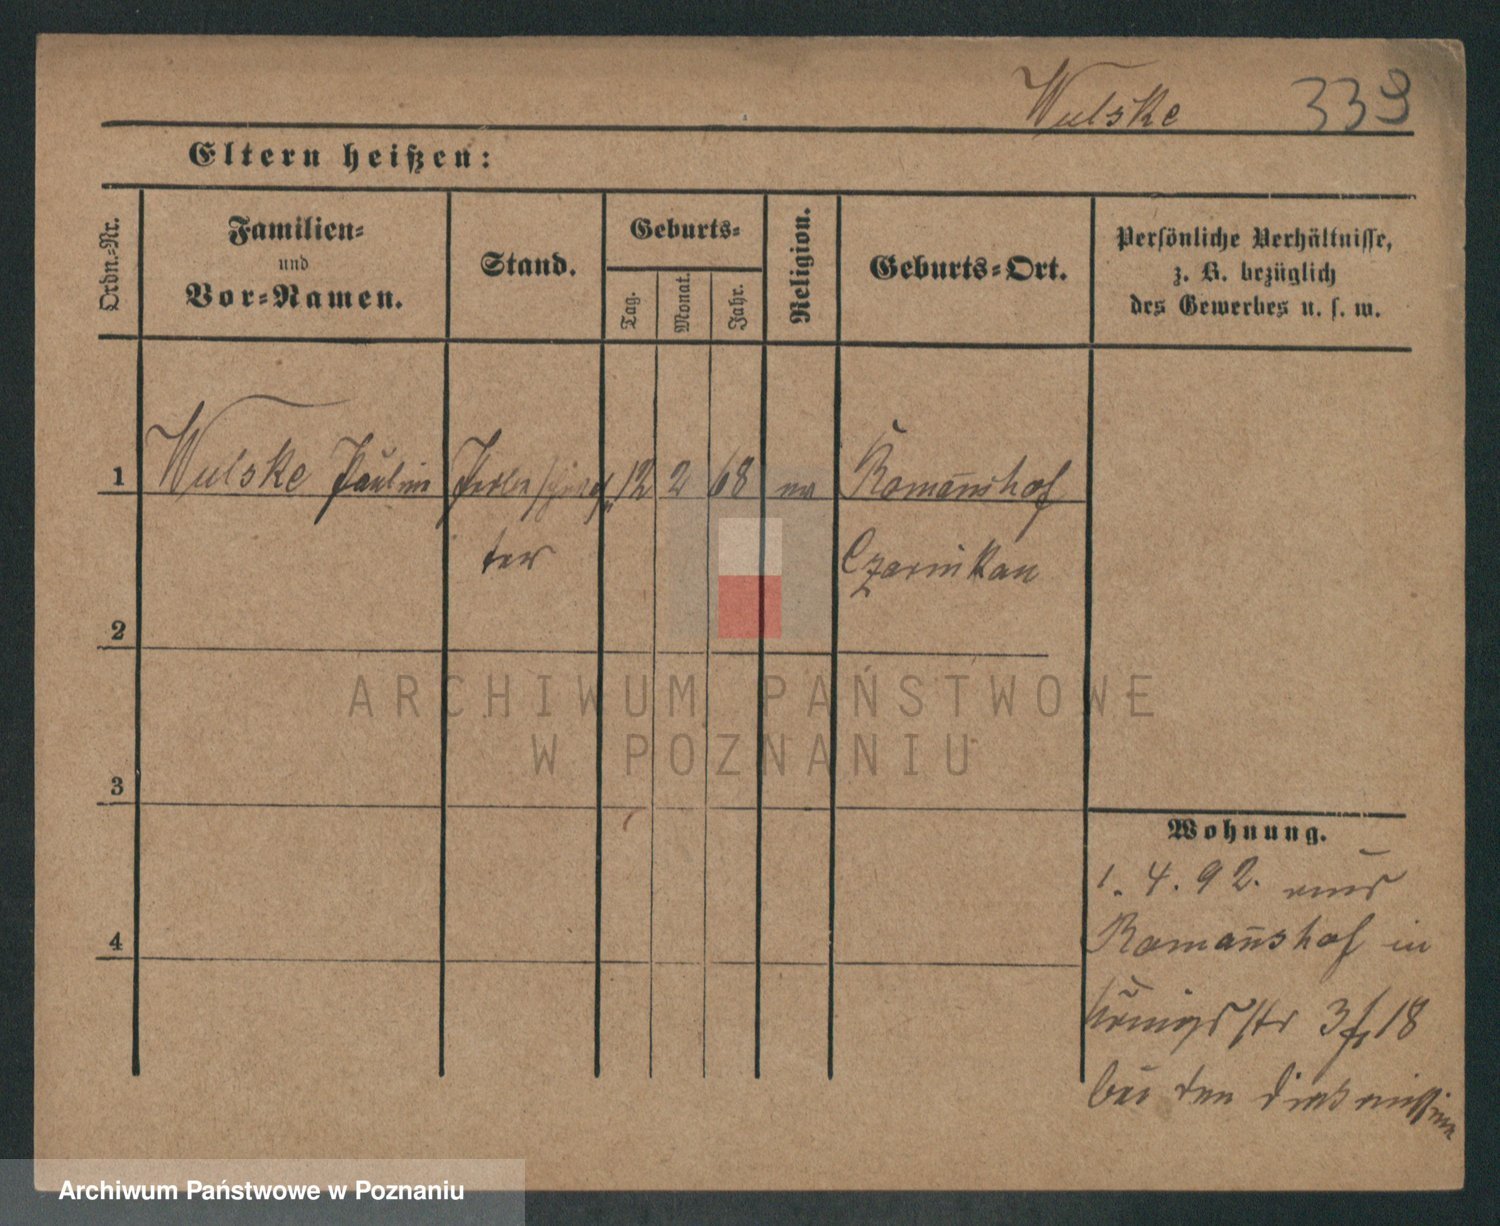 Wulske 339
Eltern heißen:
Ordn.-Nr.
Familien-
und
Vor-Namen.
Stand.
Geburts-
Tag.
Monat.
Jahr.
Religion.
Geburts-Ort.
Persönliche Verhältnisse,
z. B. bezüglich
des Gewerbes u. s. w.
1 Wulske Paulin 12 2 68 Romanshof
ter Czarnikau
2
ARCHIWUM PAŃSTWOWE
W POZNANIU
3
Wohnung.
1. 4. 92. aus
Romanshof in
4
Königsstr 18
bei den
Archiwum Państwowe w Poznaniu